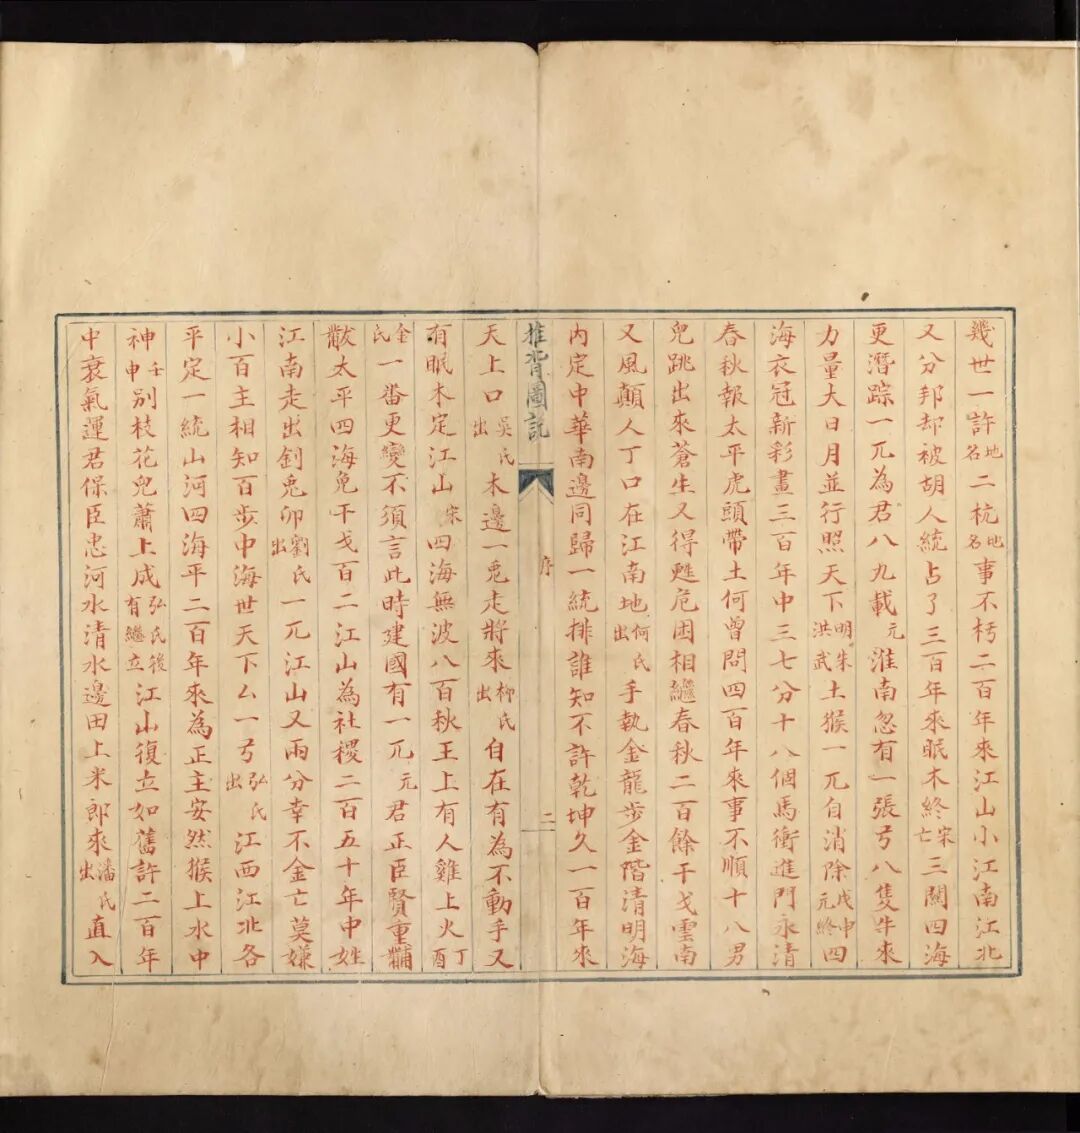 幾世一許地名二杭地名事不朽二百年來江山小江南江北
又分邦却被胡人統占了三百年來眠木終宋亡三關四海
更潛踪一兀為君八九載元淮南忽有一張弓八隻牛來
力量大日月並行照天下明朱洪武土猴一兀自消除戊申元終四
海衣冠新彩畫三百年中三七分十八個馬衝進門永清
春秋報太平虎頭帶土何曾問四百年來事不順十八男
兒跳出來蒼生又得甦危困相繼春秋二百餘干戈雲南
又風顛人丁口在江南地何氏出手執金龍步金階清明海
內定中華南邊同歸一統排誰知不許乾坤久一百年來
推背圖説
序
二
天上口吳氏出木邊一兎走將來柳氏出自在有為不動手又
有眠木定江山宋四海無波八百秋王上有人雞上火丁酉
金氏一番更變不須言此時建國有一兀元君正臣賢重黼
黻太平四海免干戈百二江山為社稷二百五十年中姓
江南走出釗兎卯劉氏出一兀江山又兩分幸不金亡莫嫌
小百主相知百步中海世天下厶一弓弘氏出江西江北各
平定一統山河四海平二百年來為正主安然猴上水中
神壬申別枝花兒蕭上成弘氏後有繼立江山復立如舊許二百年
中衰氣運君保臣忠河水清水邊田上米郎來潘氏出直入